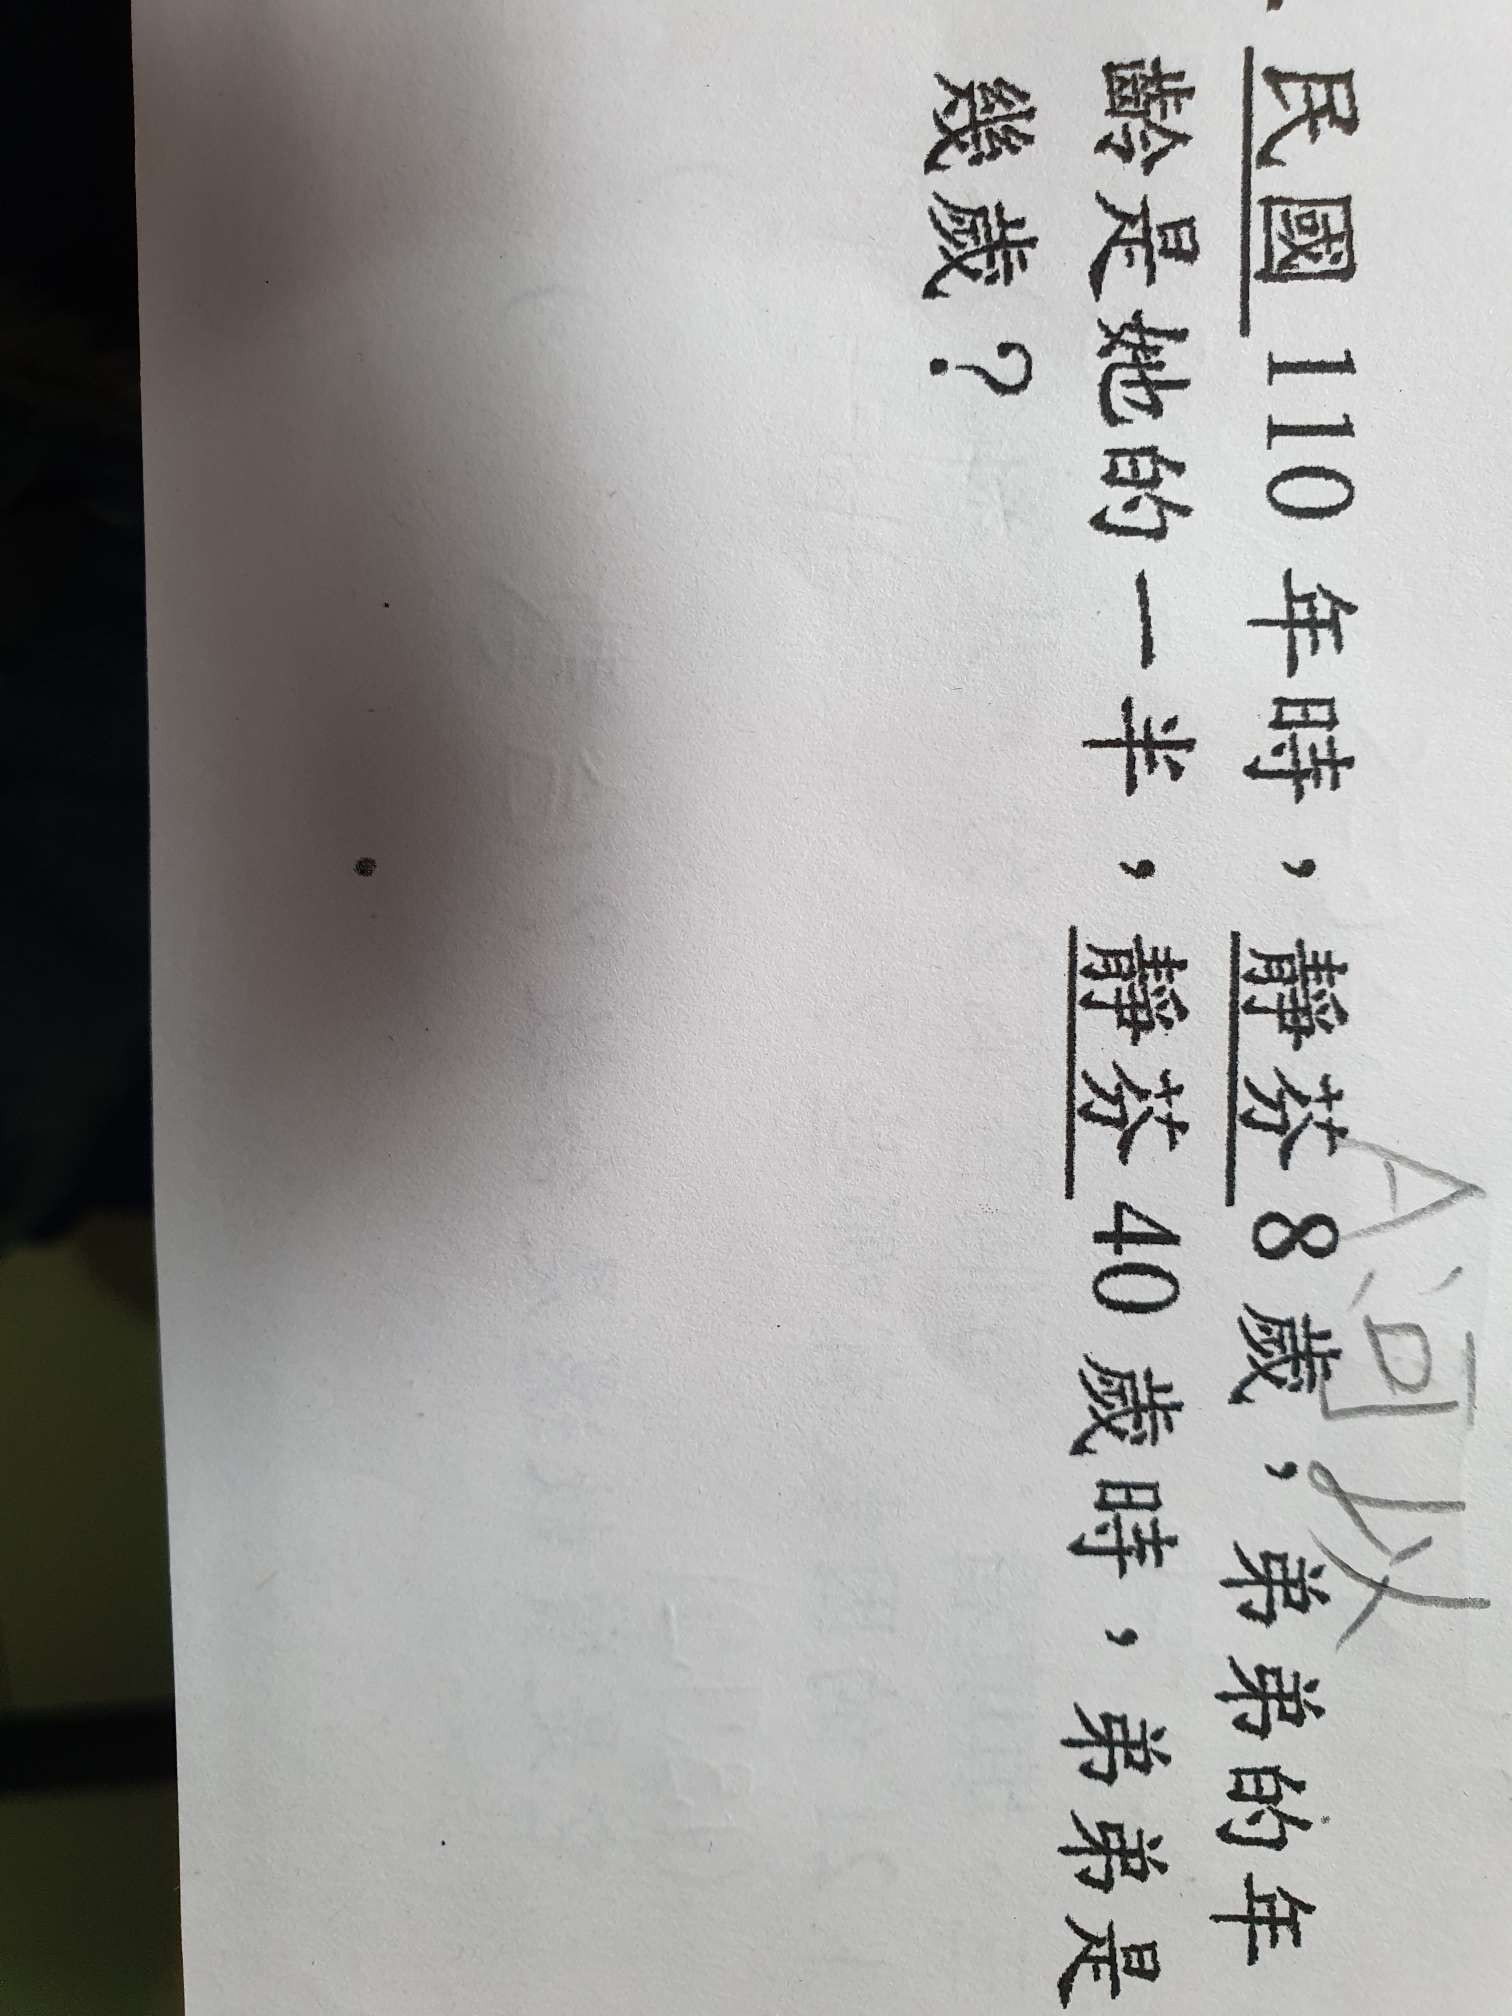 民國110年時，靜芬8歲，弟弟的年
齡是她的一半，靜芬40歲時，弟弟是
幾歲？